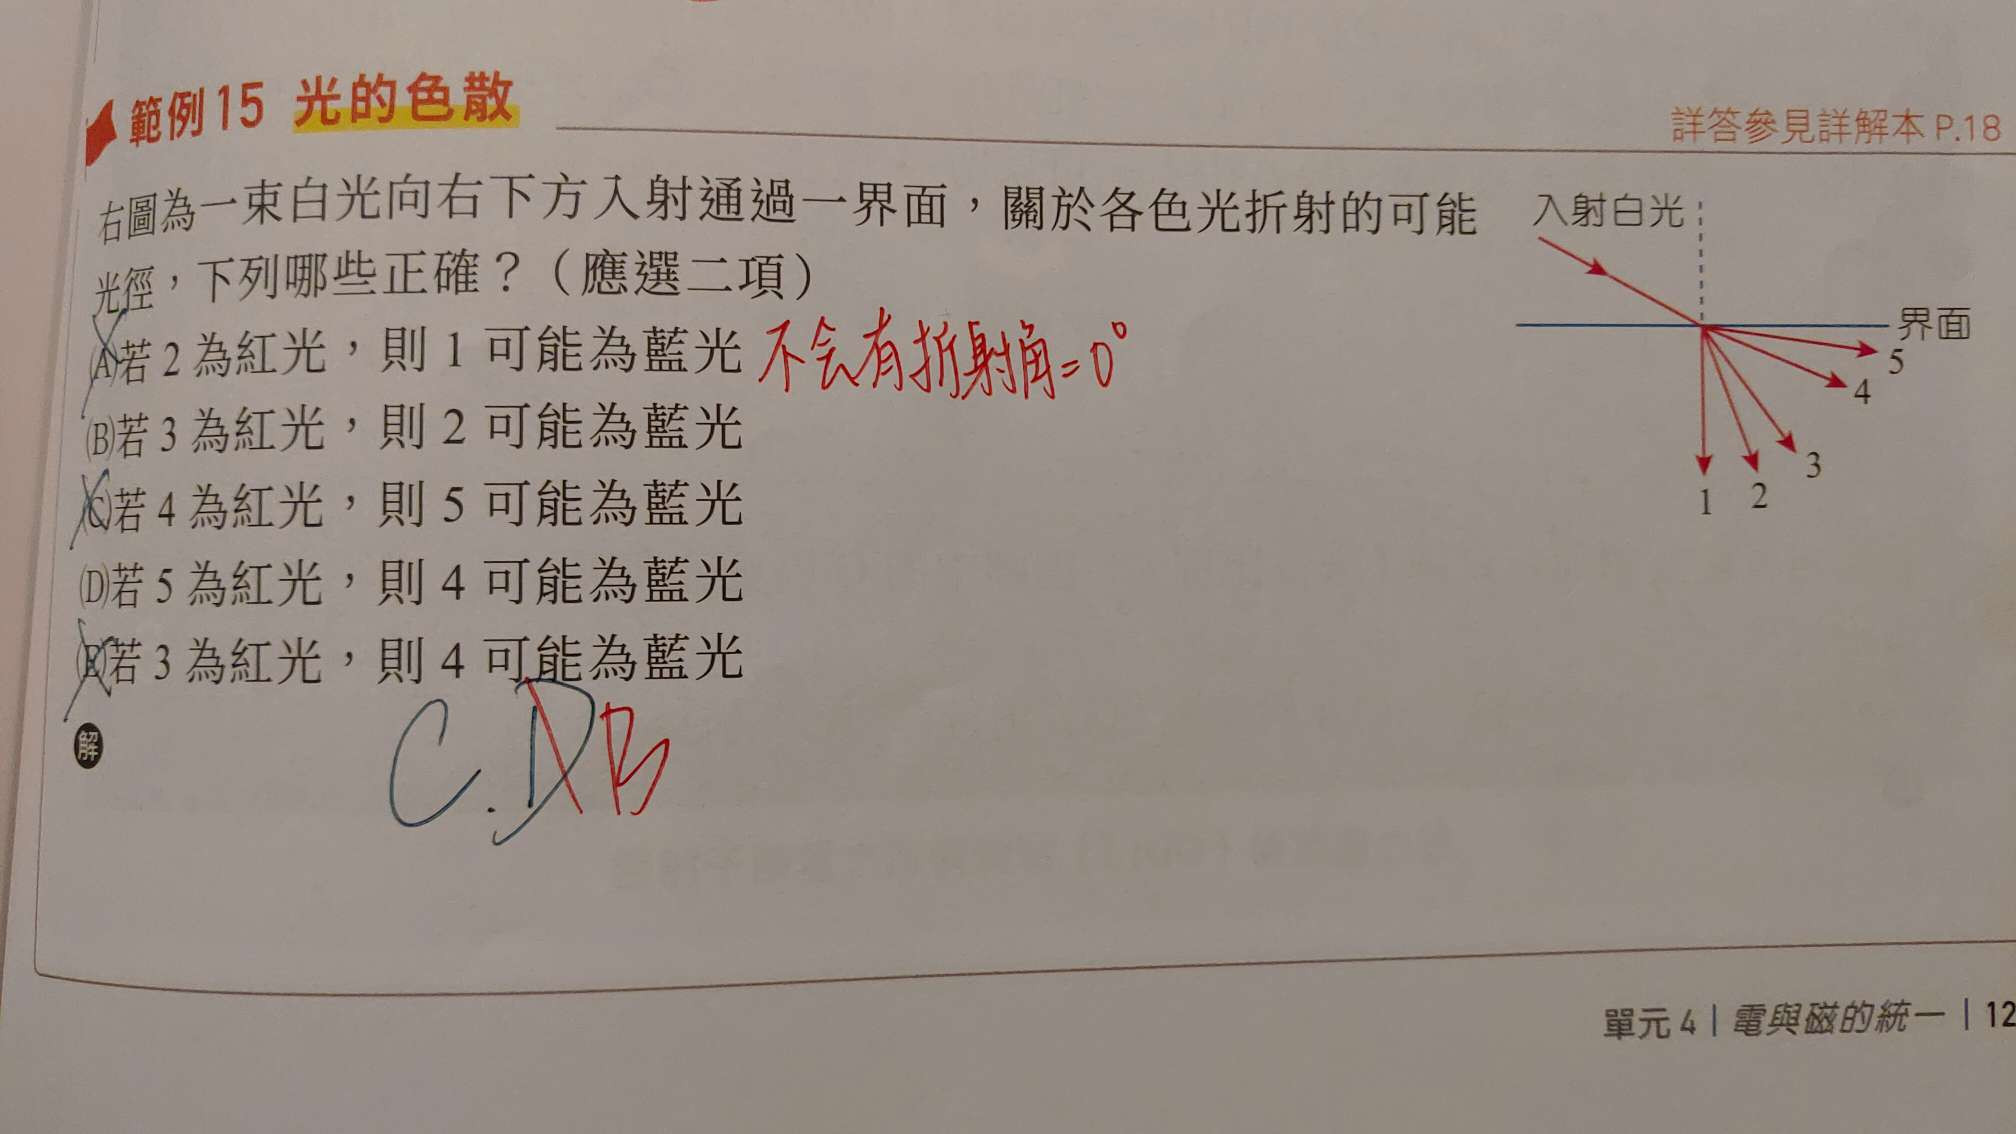 範例15 光的色散
詳答參見詳解本 P.18
右圖為一束白光向右下方入射通過一界面，關於各色光折射的可能
光徑，下列哪些正確？（應選二項）
(A)若 2 為紅光，則 1 可能為藍光 不会有折射角=0°
(B)若 3 為紅光，則 2 可能為藍光
(C)若 4 為紅光，則 5 可能為藍光
(D)若 5 為紅光，則 4 可能為藍光
(E)若 3 為紅光，則 4 可能為藍光
入射白光
界面
5
4
3
2
1
解
C.DB
單元 4 | 電與磁的統一 | 12